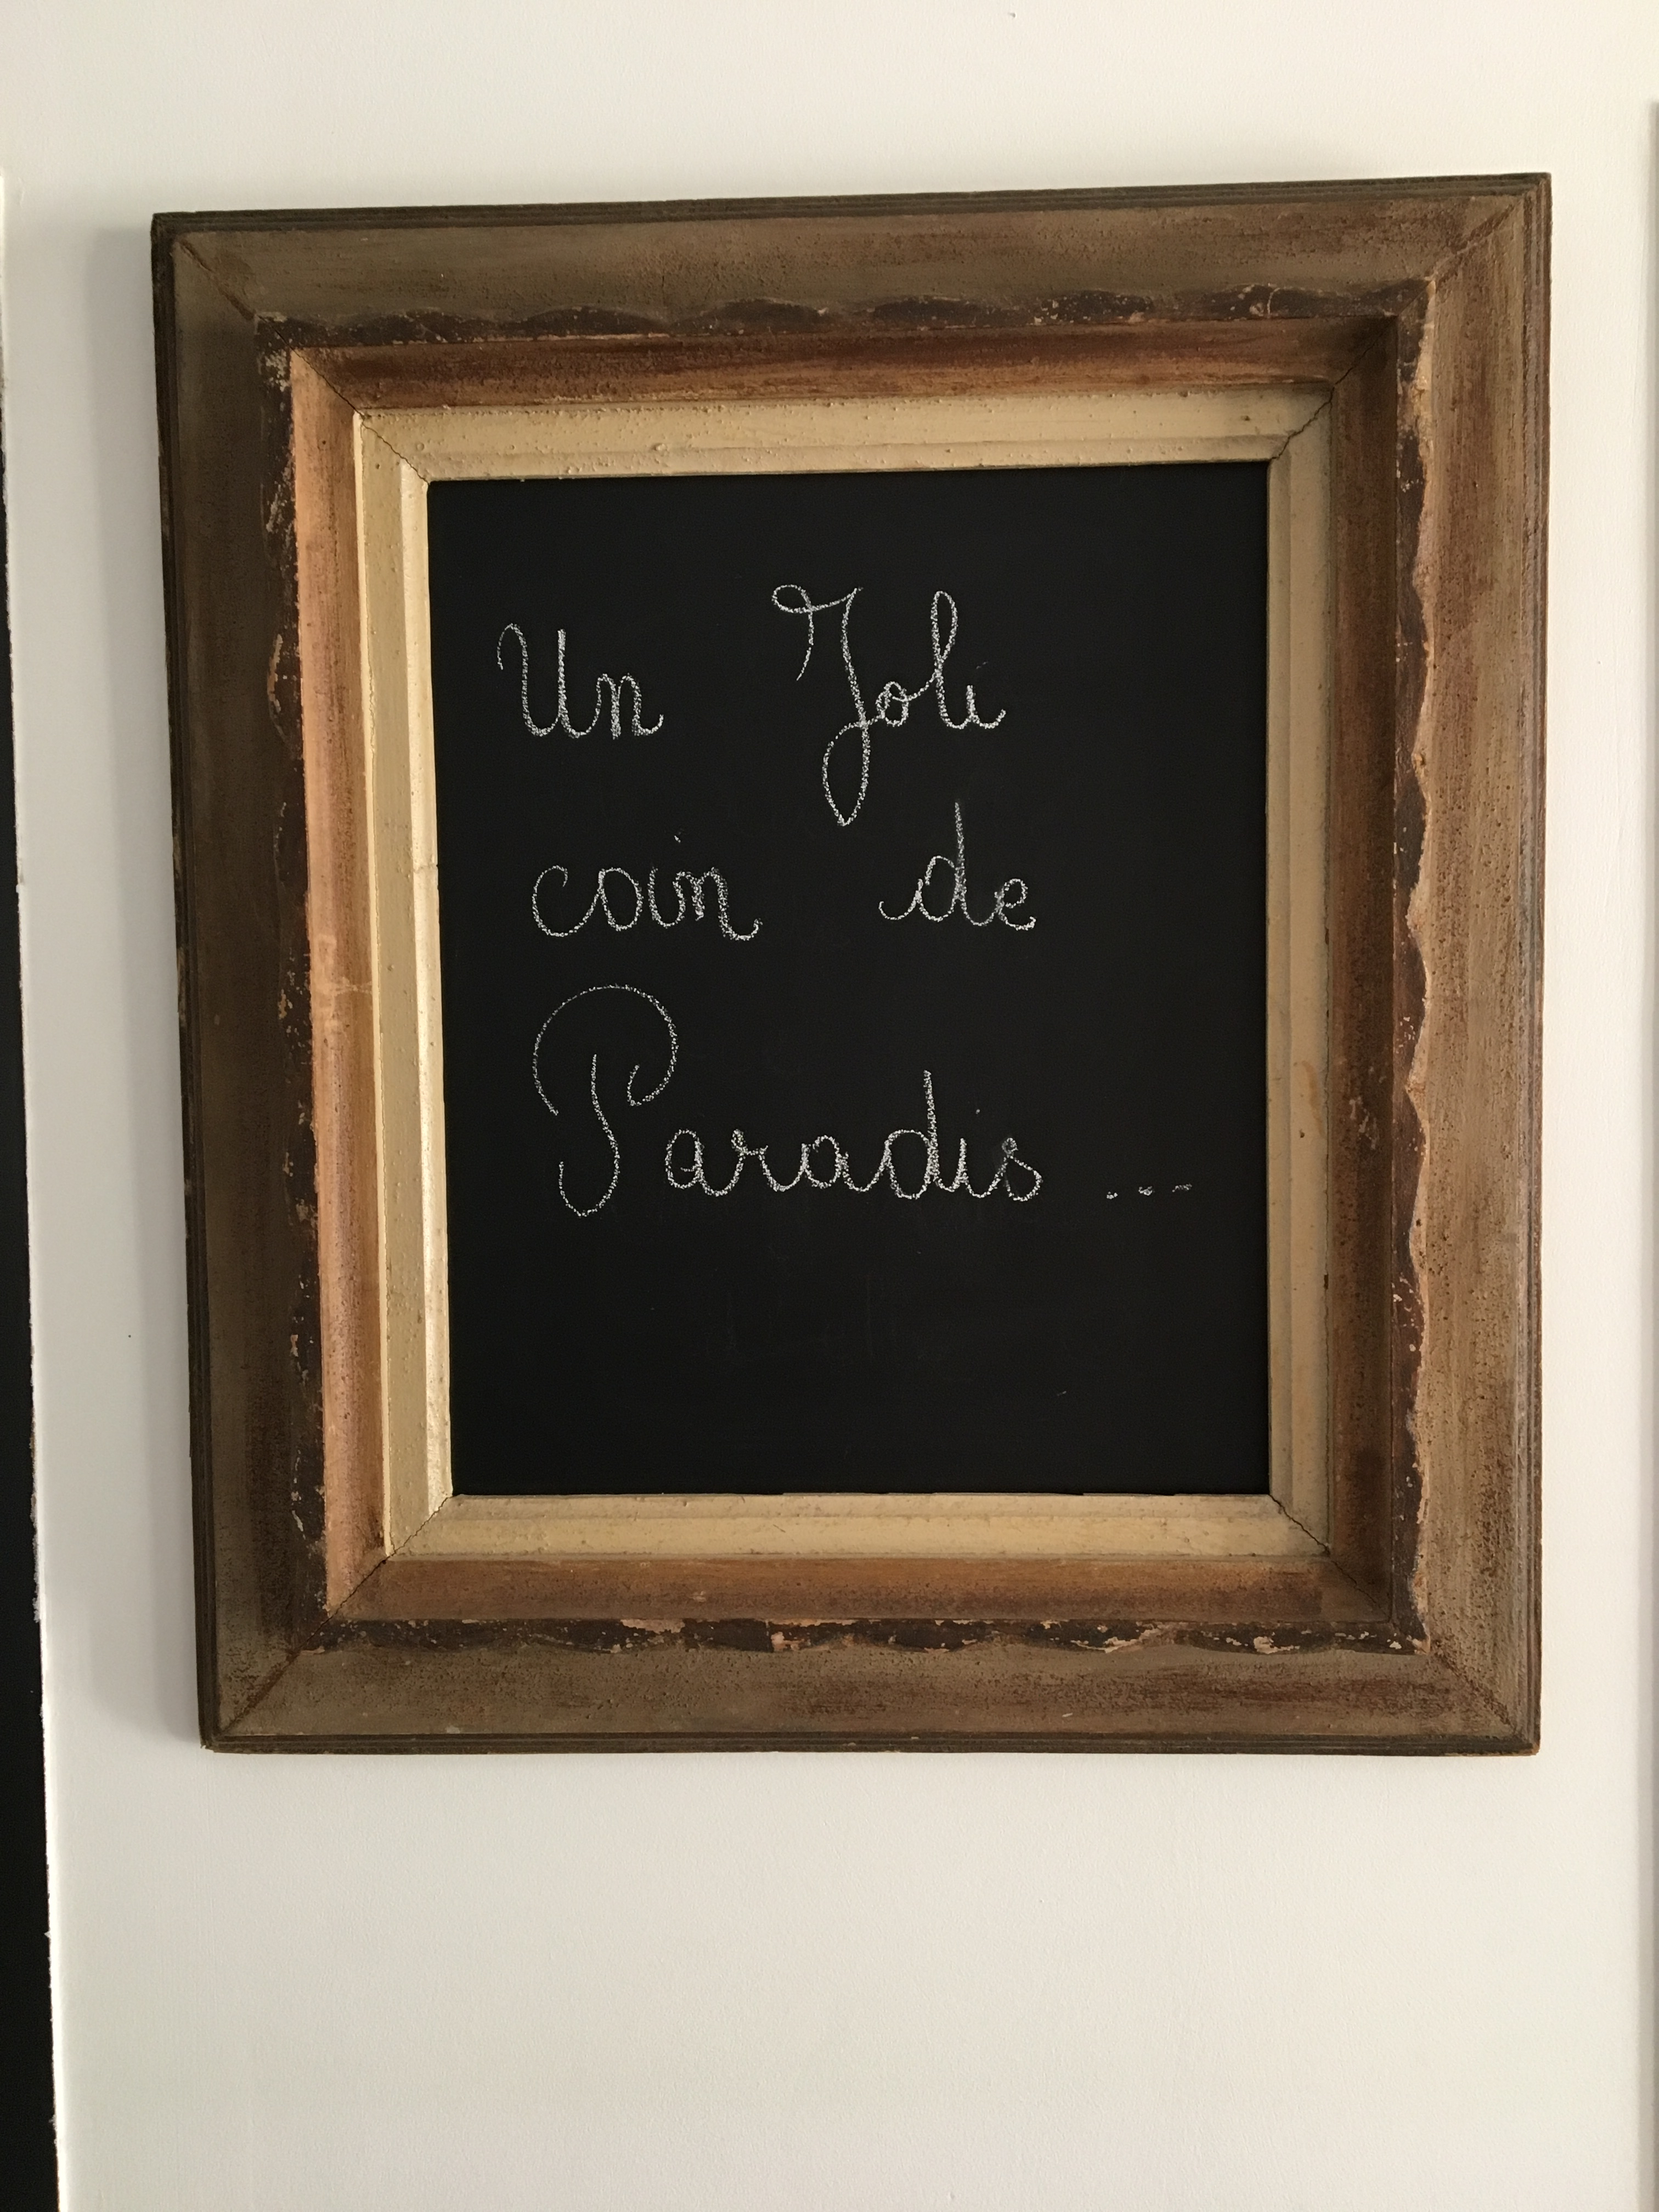 Un Joli
coin de
Paradis ...